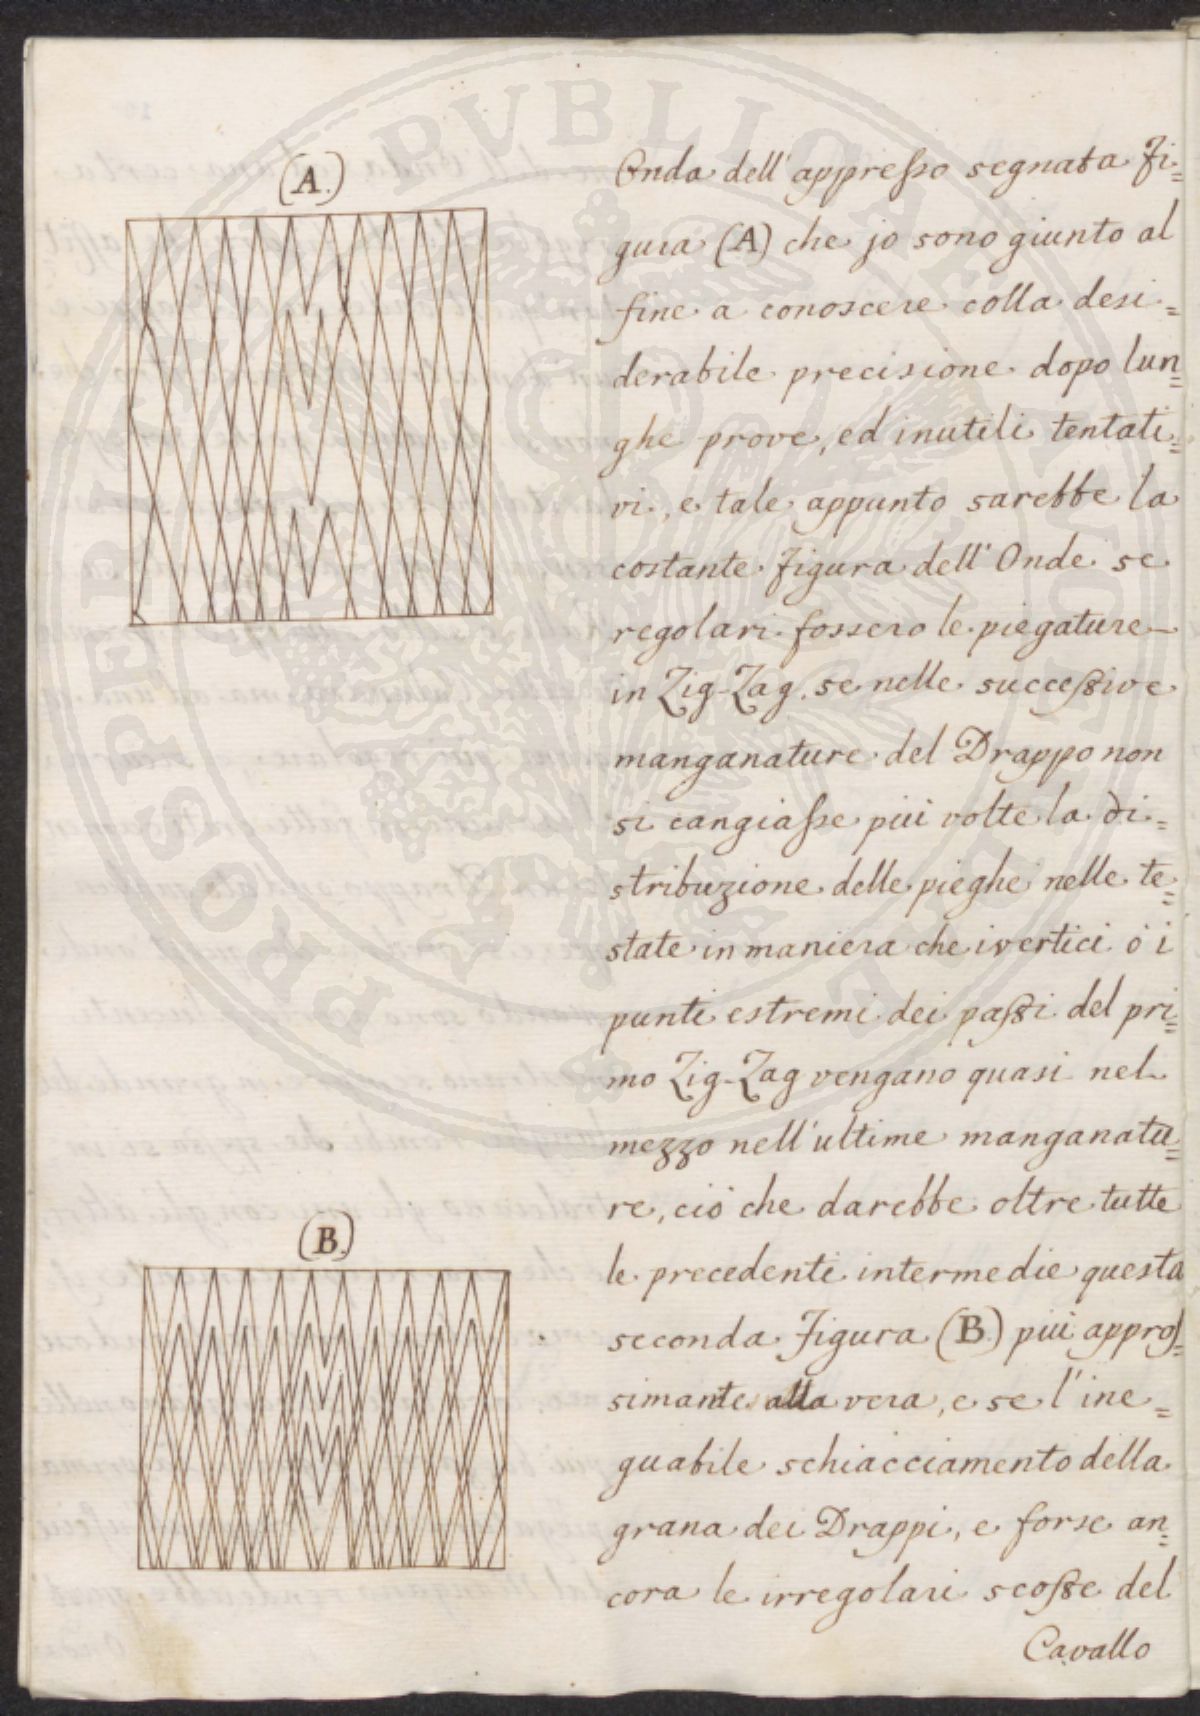 (A.)
Onda dell'appresso segnata Fi=
gura (A) che jo sono giunto al
fine a conoscere colla desi=
derabile precisione dopo lun=
ghe prove, ed inutili tentati=
vi, e tale appunto sarebbe la
costante figura dell'Onde se
regolari fossero le piegature
in Zig-Zag, se nelle successive
manganature del Drappo non
si cangiasse più volte la di=
stribuzione delle pieghe nelle te=
state in maniera che i vertici ó i
punti estremi dei passi del pri=
mo Zig-Zag vengano quasi nel
mezzo nell'ultime manganatu=
re, ciò che darebbe oltre tutte
le precedenti intermedie questa
seconda Figura (B.) più appros=
simante alla vera, e se l'ine=
guabile schiacciamento della
grana dei Drappi, e forse an=
cora le irregolari scosse del
Cavallo
(B.)
PROSPERITATI PUBLICAE